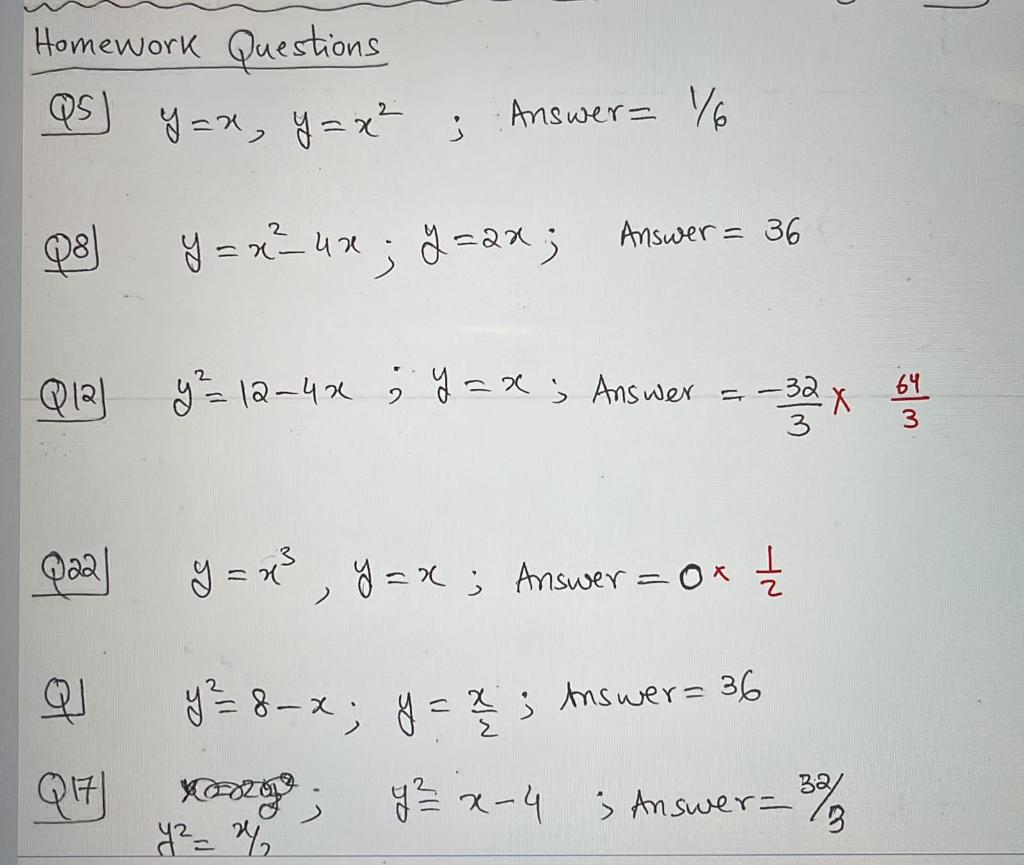 Homework Questions
Q5] y=x, y=x² ; Answer= 1/6
Q8] y=x²-4x ; y=2x ; Answer= 36
Q12] y²=12-4x ; y=x ; Answer = -32/3 x 64/3
Q22] y=x³, y=x ; Answer=0 x 1/2
Q] y²=8-x ; y=x/2 ; Answer= 36
Q17] ; y²=x-4 ; Answer= 32/3
y²=x/2